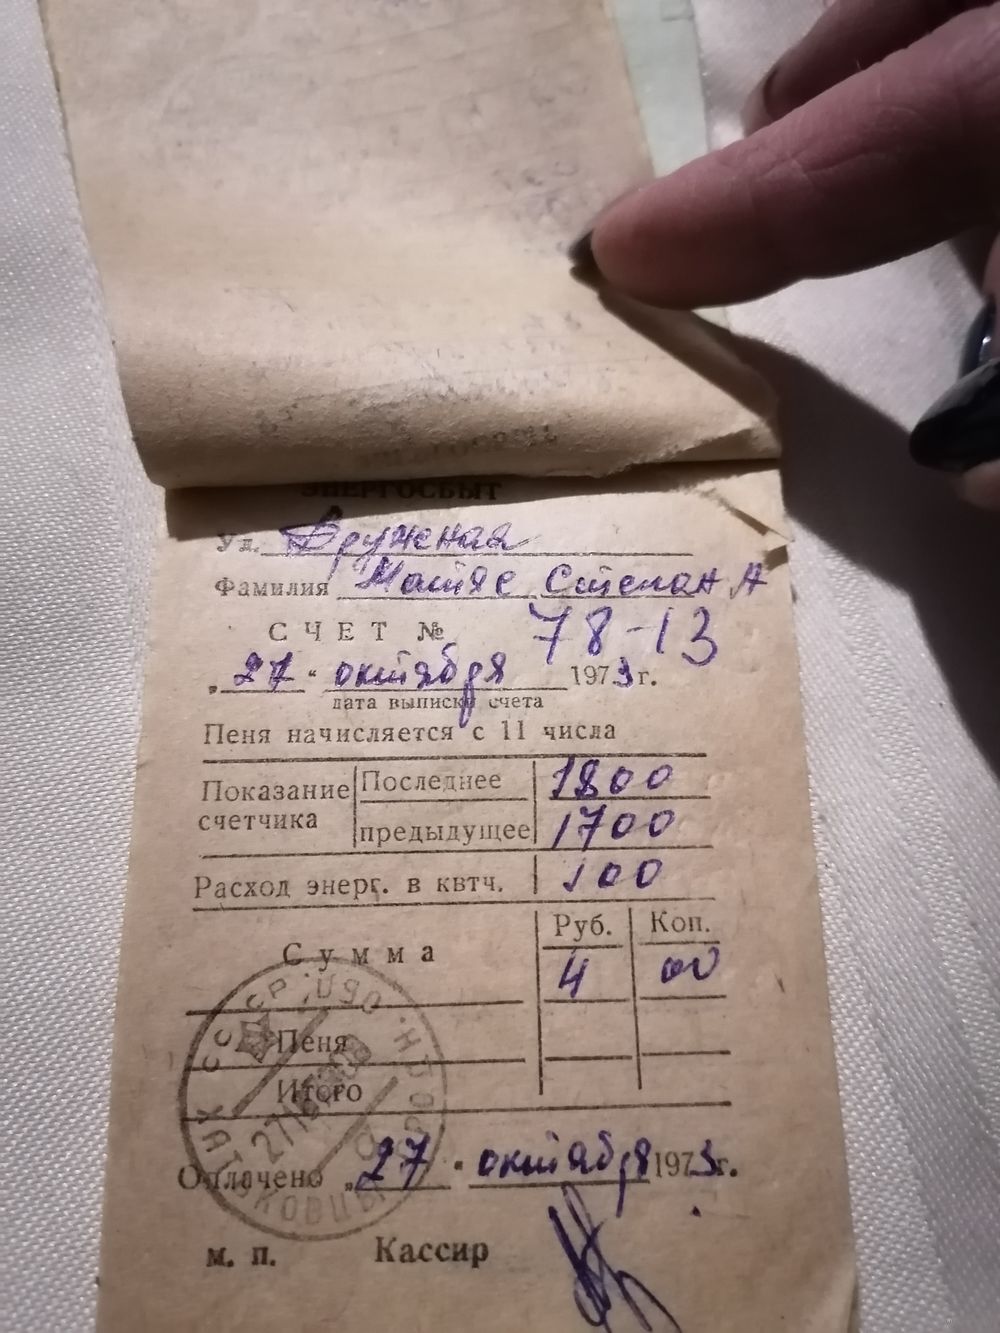 ЭНЕРГОСБЫТ
Ул. Дружная
Фамилия Матяс Степан А
СЧЕТ № 78-13
„27" октября 1973 г.
дата выписки счета
Пеня начисляется с 11 числа
Показание счетчика Последнее 1800
предыдущее 1700
Расход энерг. в квтч. 100
Руб. Коп.
Сумма 4 00
Пеня
Итого
Оплачено „27" октября 1973 г.
м. п. Кассир